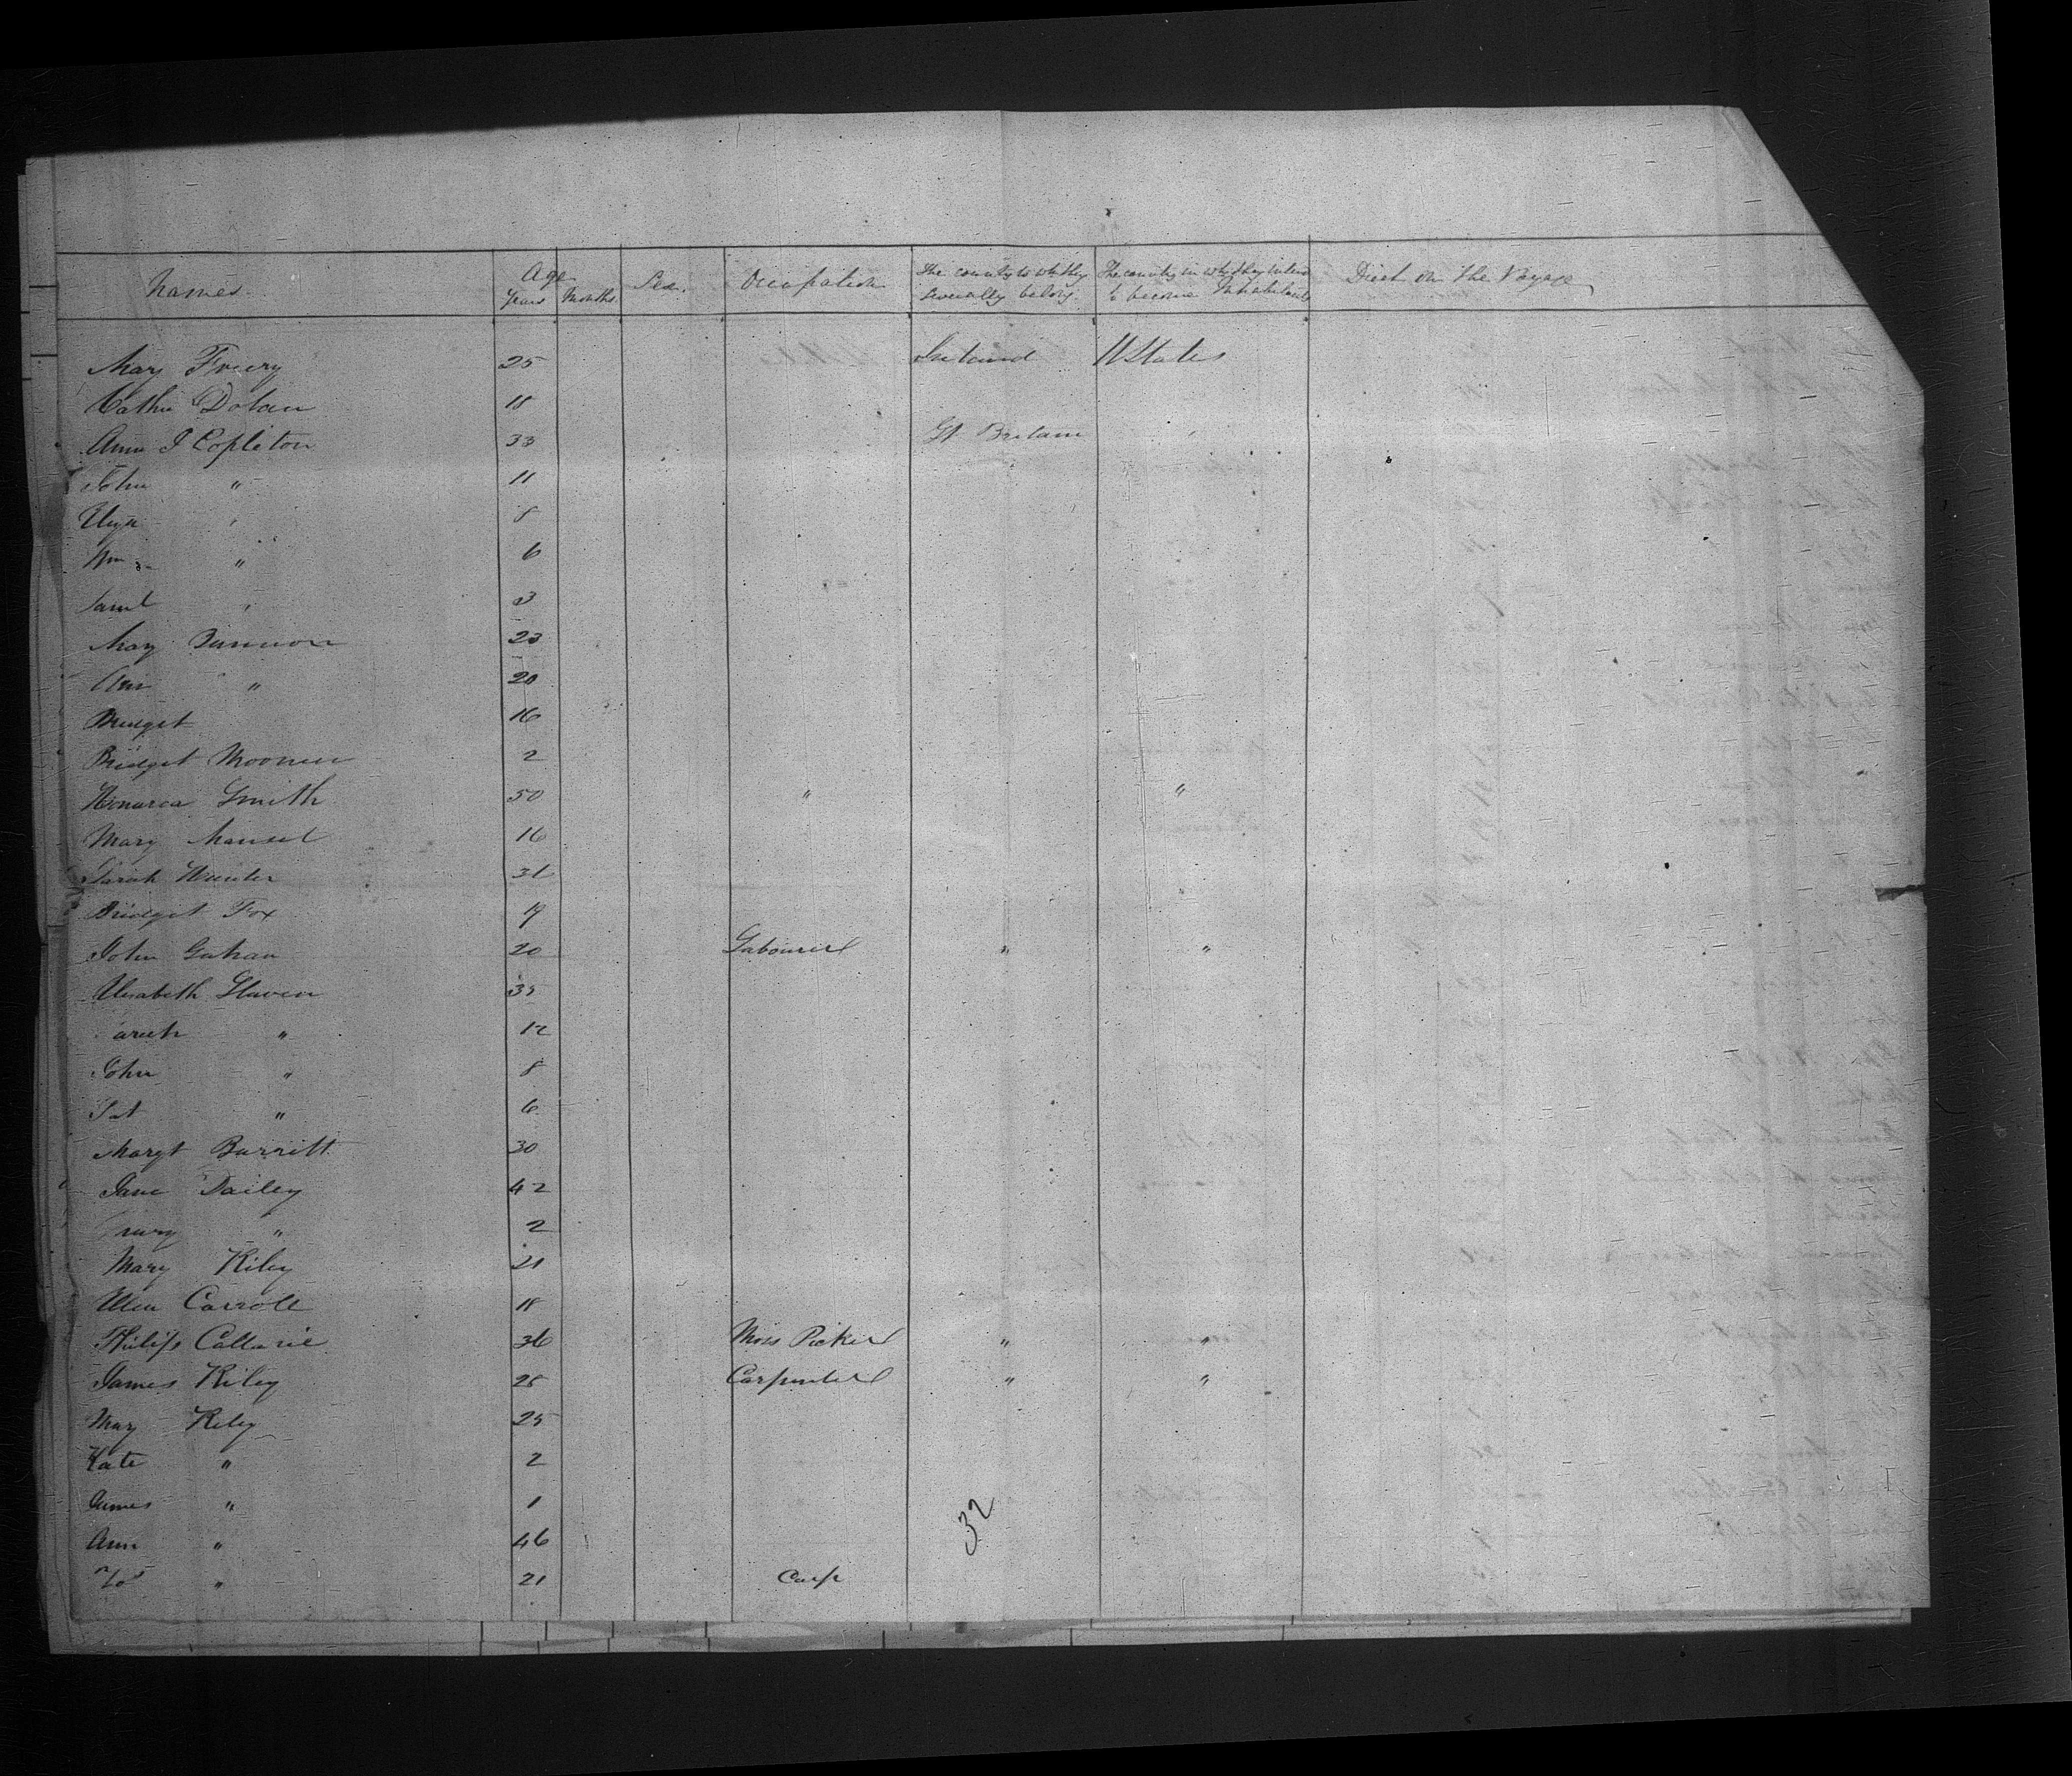 Names. Age Years Months. Sex. Occupation The country to wh they severally belong. The country in wh they intend to become Inhabitants Died on the Voyage
Mary Freery 25 Ireland U States
Cathe Dolan 18
Ann J Copleton 33 Gt Britain "
John " 11
Eliza " 8
Wm " 6
Saml " 3
Mary Bannon 23
Ann " 20
Bridget 16
Bridget 2
Honarea Smith 50 " "
Mary Mansel 16
Sarah Hunter 31 "
Bridget Fox 19
John Gahan 20 Labourer " "
Elisabeth Slaven 35
Sarah " 12
John " 8
Pat " 6
Margt Barritt 30
Jane Dailey 42
" 2
Mary Riley 21
Ellen Carroll 18
Philip 36 Moss Picker " "
James Riley 28 Carpenter " "
Mary Riley 25
Kate " 2
James " 1
Ann " 46
" 21 Carp
32